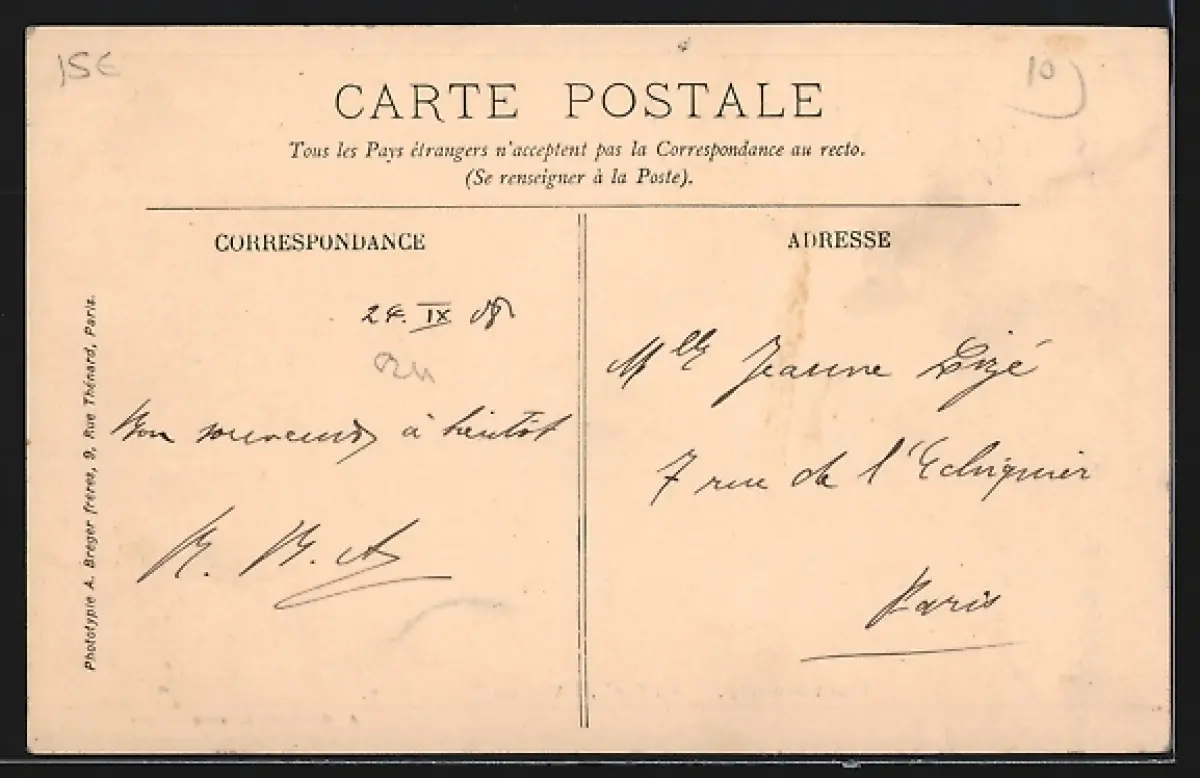 15€
10
CARTE POSTALE
Tous les Pays étrangers n'acceptent pas la Correspondance au recto.
(Se renseigner à la Poste).
CORRESPONDANCE
24. IX
Bon souvenir à bientôt
Phototypie A. Breger frères, 9, Rue Thénard, Paris.
ADRESSE
Mlle Jeanne
7 rue de l'Echiquier
Paris